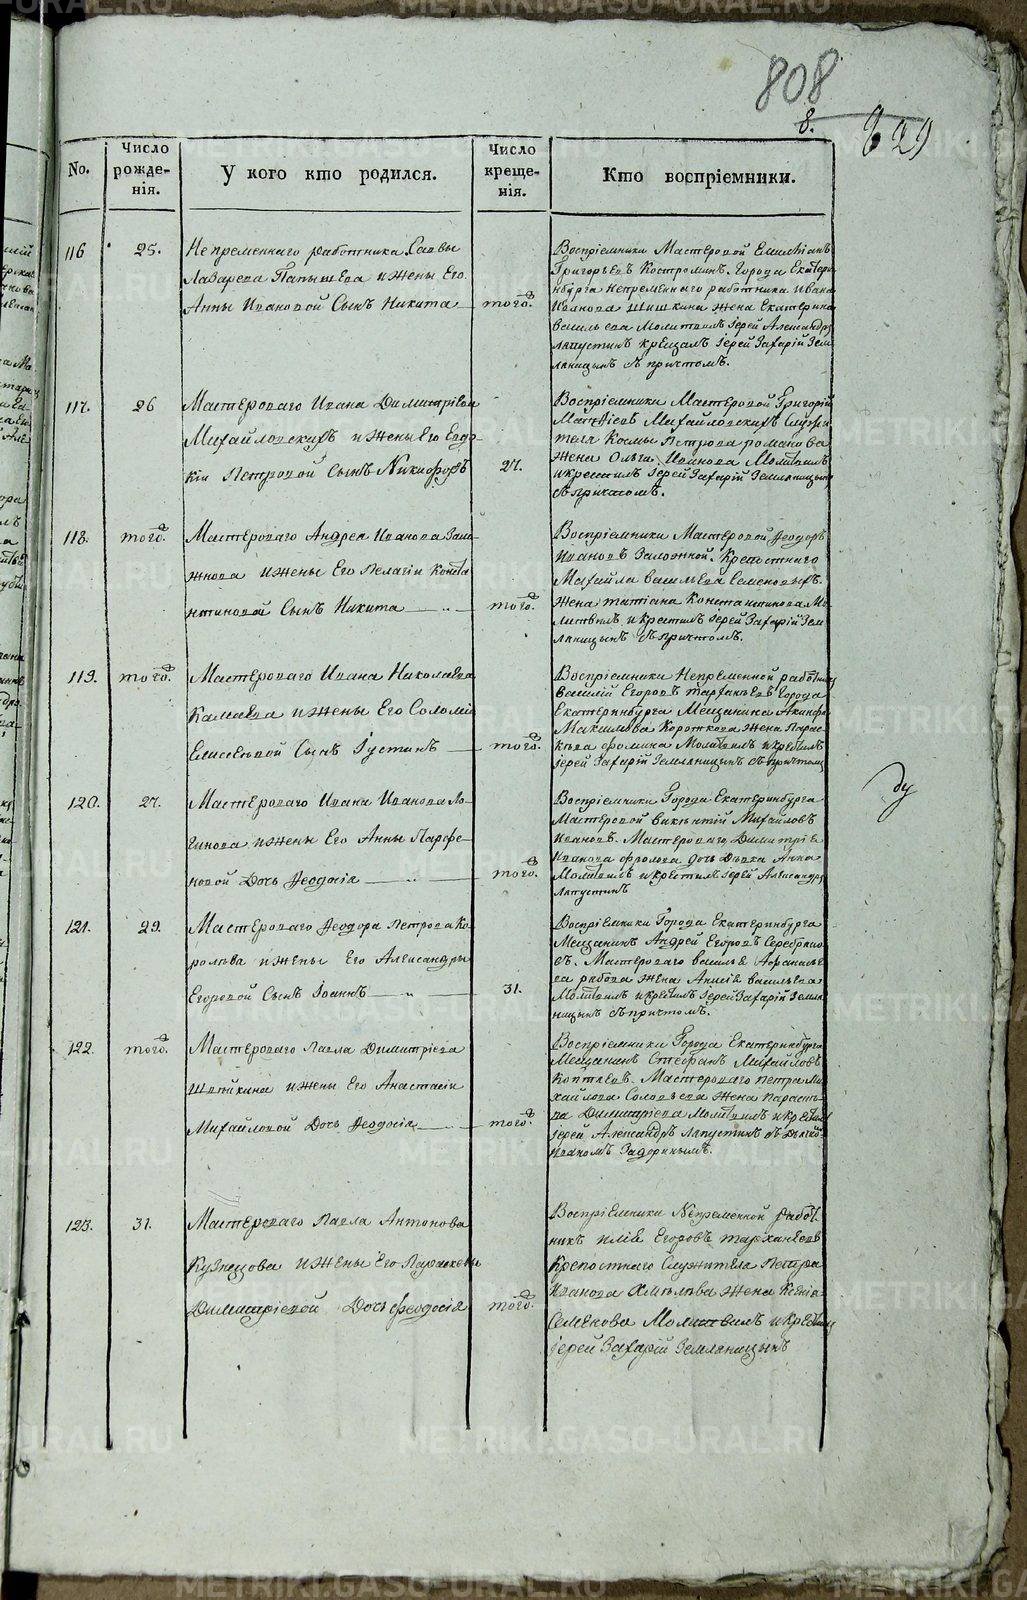 808
8.
829
No.
Число рожде-нія.
У кого кто родился.
Число креще-нія.
Кто воспріемники.
116
25.
Непременнаго работника Саввы
Лазарева Папышева и жены Его
Анны Ивановой Сынъ Никита
тогоѡ.
Воспріемники Мастеровой Емиліанъ
Григорьевъ Костроминъ. Города Екатери
нбурга непременнаго работника Ивана
Иванова Шишкина жена Екатерина
васильева Молитвилъ Іерей Александръ
лапустинъ крещалъ Іерей Захарій Зем
ляницынъ съ причтомъ.
117.
26
Мастероваго Ивана Димитріева
Михайловскихъ и жены Его Евдо-
кіи Петровой Сынъ Никифоръ
27.
Воспріемники Мастеровой Григорій
Матвіевъ Михайловскихъ Служи
теля Космы Петрова романова
жена Ольга Иванова Молитвилъ
и крестилъ Іерей Захарій Земляницынъ
съ причтомъ.
118.
тогоѡ.
Мастероваго Андрея Иванова Зало
жнова и жены Его Пелагіи Конста
нтиновой Сынъ Никита
тогоѡ.
Воспріемники Мастеровой Ѳеодоръ
Ивановъ Заложной. Крепостнаго
Михайла васильева Семеновыхъ
жена татіана Константинова Мо
литвилъ и крестилъ Іерей Захарій Зем
ляницынъ съ причтомъ.
119.
тогоѡ.
Мастероваго Ивана Николаева
Камаева и жены Его Соломіи
Елисеевой Сынъ Іустинъ
тогоѡ.
Воспріемники Непременной работникъ
василій Егоровъ тарханѣевъ Города
Екатеринбурга Мещанина Акинфа
Максимова Короткова жена Парас-
кѣва фомина Молитвилъ и крестилъ
Іерей Захарій Земляницынъ съ причтомъ
120.
27.
Мастероваго Ивана Иванова Ло-
гинова и жены Его Анны Парфе-
новой Дочь Ѳеодосія
тогоѡ.
Воспріемники Города Екатеринбурга
Мастеровой викентій Михайловъ
Ивановъ. Мастероваго Димитріѧ
Иванова фролова дочь Дѣвка Анна
Молитвилъ и крестилъ Іерей Александръ
лапустинъ
121.
29.
Мастероваго Ѳеодора Петрова Ко-
ролева и жены Его Александры
Егоровой Сынъ Іоаннъ
31.
Воспріемники Города Екатеринбурга
Мещанинъ Андрей Егоровъ Серебряко
въ. Мастероваго василья Афанасье
ва рябова жена Анисія васильева
Молитвилъ и крестилъ Іерей Захарій Земля
ницынъ съ причтомъ.
122.
тогоѡ.
Мастероваго Павла Димитріева
Шѣйкина и жены Его Анастасіи
Михайловой Дочь Ѳеодосія
тогоѡ.
Воспріемники Города Екатеринбурга
Мещанинъ Стефанъ Михайловъ
Коптяевъ. Мастероваго Петра Ми
хайлова Соловьева жена Параскѣ
ва Димитріева Молитвилъ и крестилъ
Іерей Александръ лапустинъ съ дьячко
Иваномъ Задоринымъ.
123.
31.
Мастероваго Павла Антонова
Кузнецова и жены Его Параскевы
Димитріевой Дочь Феодосія
тогоѡ.
Воспріемники Непременной работ
никъ илія Егоровъ тарханѣевъ
Крепостнаго Служителя Петра
Иванова жена Ксенія
Семенова Молитвилъ и крестилъ
Іерей Захарій Земляницынъ
METRIKI.GASO-URAL.RU